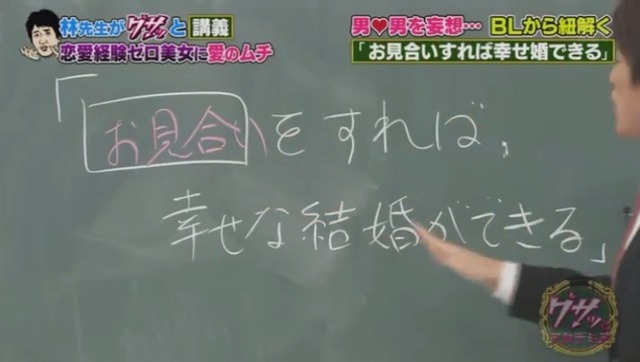 林先生がグサッと講義
恋愛経験ゼロ美女に愛のムチ
男♥男を妄想… BLから紐解く
「お見合いすれば幸せ婚できる」
「お見合いをすれば、
幸せな結婚ができる」
グサッと
アカデミア